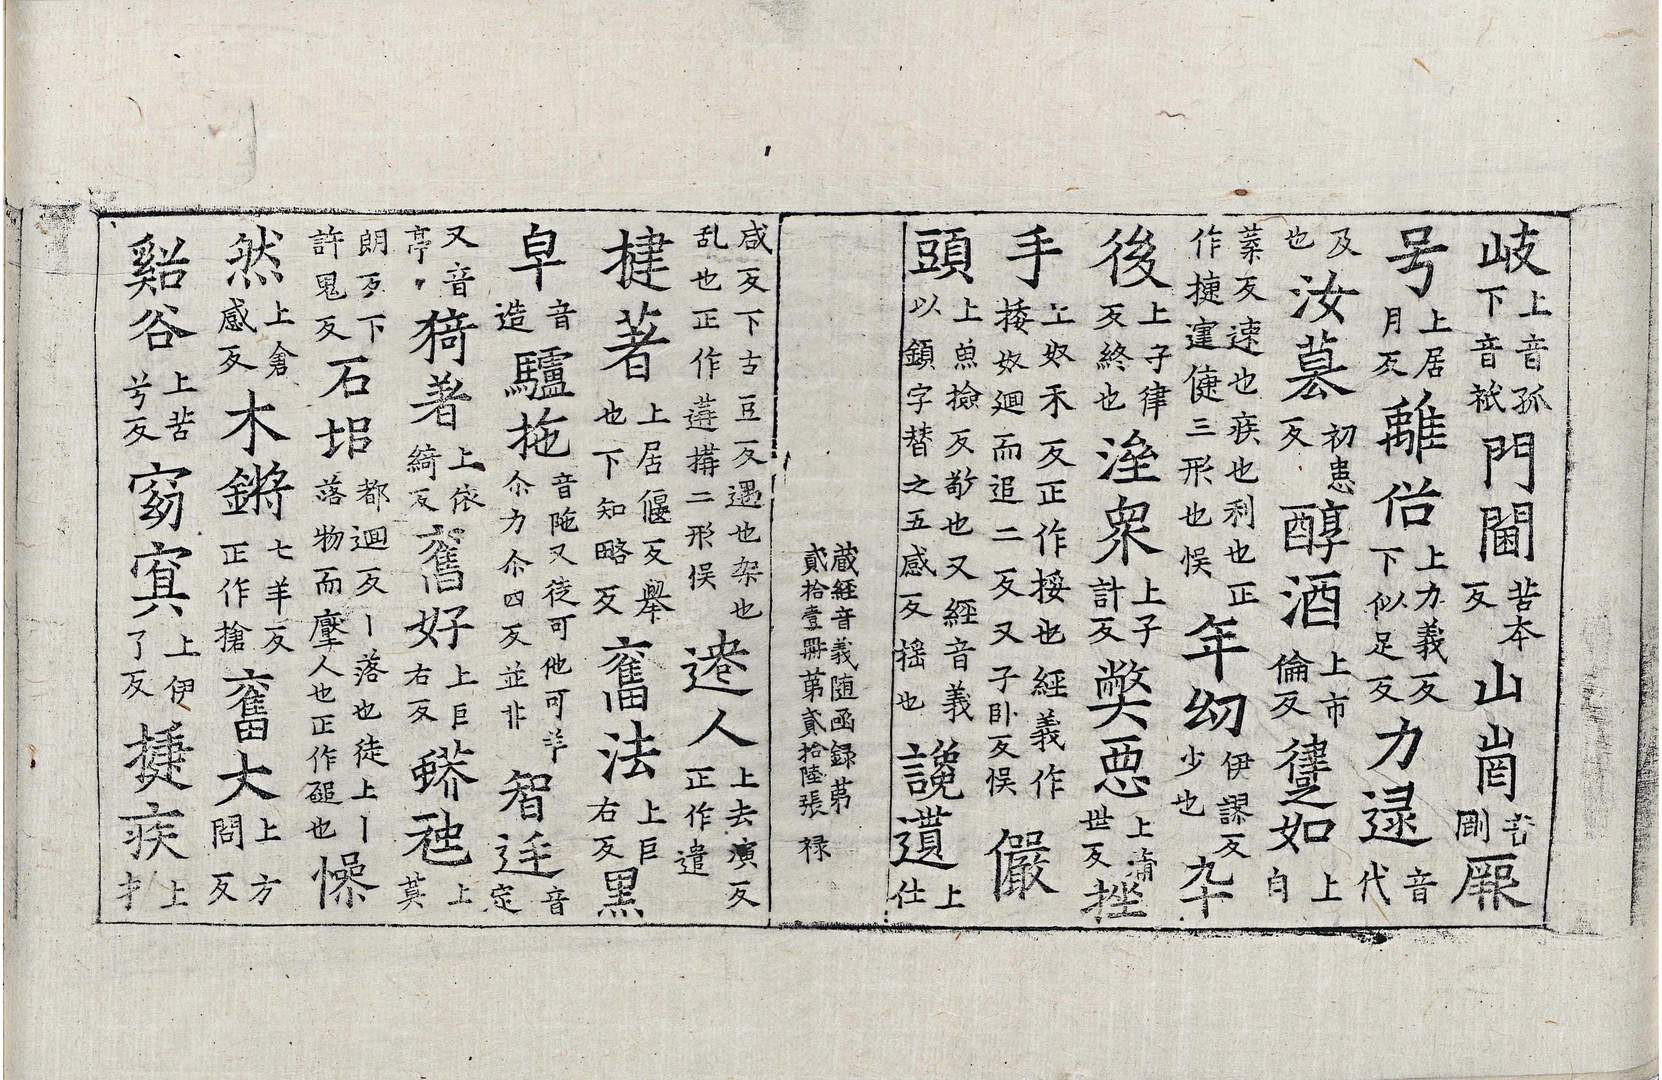 岐上音孤下音祇門閫苦本反山崗音剛厥
号上居月反離俗上力義反下似足反力逯音代
及也汝墓初患反醇酒上市倫反躄如上自
葉反速也疾也利也正作捷疌倢三形也悮年幼伊謬反少也九十
後上子律反終也溼衆上子計反獘惡上蒲世反挫
手上奴禾反正作挼也經義作捼奴迴而追二反又子卧反悮儼
頭上魚撿反敬也又經音義以鎮字替之五感反搖也讒遺上仕
藏經音義随函録第貳拾壹冊第貳拾陸張 禄
咸反下古豆反遇也架也乱也正作遘搆二形悮遣人上去演反正作遣
揵著上居偃反舉也下知略反舊法上巨右反黑
皁音造驢拖音陁又徒可他可羊尒力尒四反並非智迋音定
又音亭猗著上依綺反舊好上巨右反蟒虵上莫
朗反下許鬼反石塠都迴反丨落也徒上丨落物而壓人也正作磓也懆
然上倉感反木鏘七羊反正作搶舊大上方問反
谿谷上苦兮反窈冥上伊了反捷疾上才